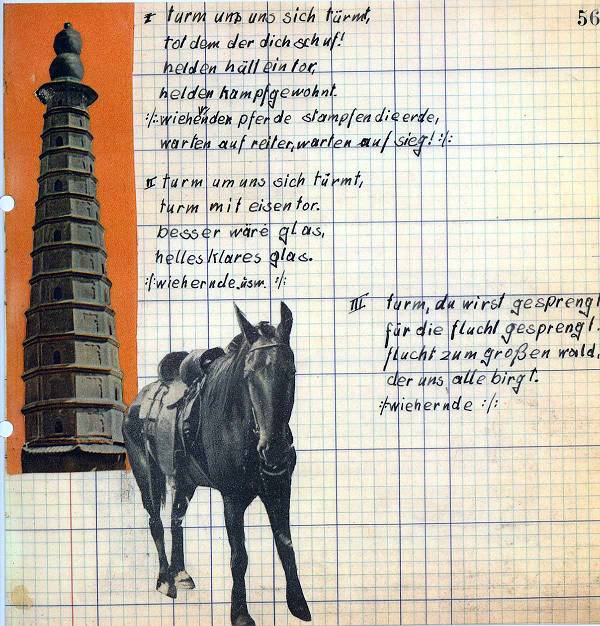 56
I turm uns uns sich türmt,
tot dem der dich schuf!
helden hält ein tor,
helden kampfgewohnt.
:/: wiehernden pferde stampfen die erde,
warten auf reiter, warten auf sieg! :/:
II turm um uns sich türmt,
turm mit eisentor.
besser wäre glas,
helles klares glas.
:/: wiehernde usw. :/:
III turm, du wirst gesprengt
für die flucht gesprengt.
flucht zum großen wald,
der uns alle birgt.
:/: wiehernde :/: